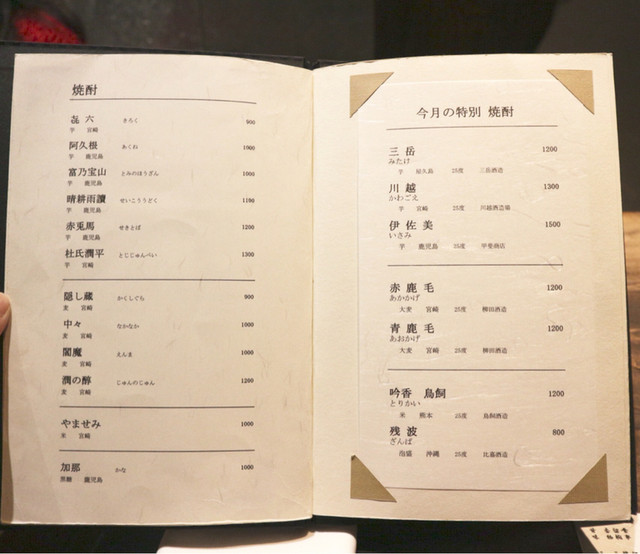 焼酎
㐂六 きろく 900
芋 宮崎
阿久根 あくね 1000
芋 鹿児島
富乃宝山 とみのほうざん 1000
芋 鹿児島
晴耕雨讀 せいこううどく 1100
芋 鹿児島
赤兎馬 せきとば 1200
芋 鹿児島
杜氏潤平 とじじゅんぺい 1300
芋 宮崎
隠し蔵 かくしぐら 900
麦 宮崎
中々 なかなか 1000
麦 宮崎
閻魔 えんま 1000
麦 宮崎
潤の醇 じゅんのじゅん 1200
麦 宮崎
やませみ 1000
米 宮崎
加那 かな 1000
黒糖 鹿児島
今月の特別 焼酎
三岳 1200
みたけ
芋 屋久島 25度 三岳酒造
川越 1300
かわごえ
芋 宮崎 25度 川越酒造場
伊佐美 1500
いさみ
芋 鹿児島 25度 甲斐商店
赤鹿毛 1200
あかかげ
大麦 宮崎 25度 柳田酒造
青鹿毛 1200
あおかげ
大麦 宮崎 25度 柳田酒造
吟香 鳥飼 1200
とりかい
米 熊本 25度 鳥飼酒造
残波 800
ざんぱ
泡盛 沖縄 25度 比嘉酒造